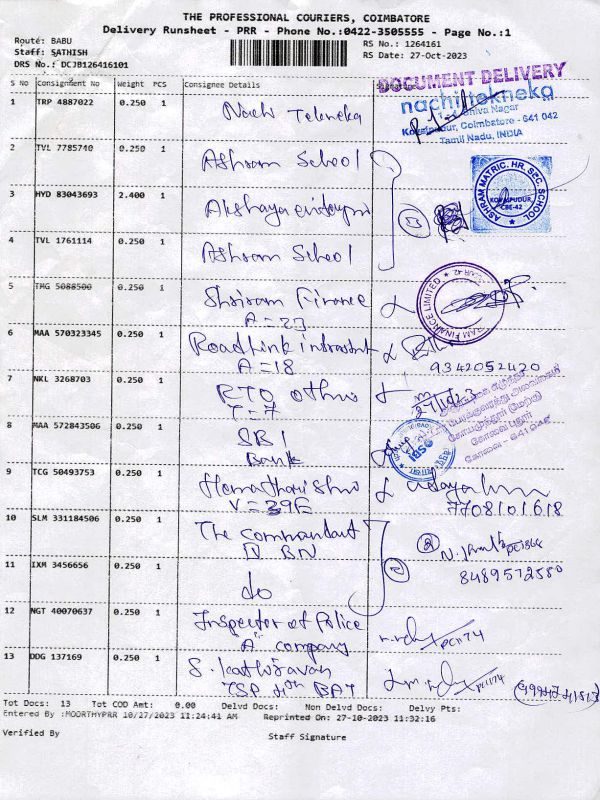 THE PROFESSIONAL COURIERS, COIMBATORE
Delivery Runsheet - PRR - Phone No.:0422-3505555 - Page No.:1
Route: BABU
Staff: SATHISH
DRS No.: DCJB126416101
RS No.: 1264161
RS Date: 27-Oct-2023
S No Consignment No Weight PCS Consignee Details
DOCUMENT DELIVERY
nachi tekneka
Shiva Nagar
Kovaipudur, Coimbatore - 641 042
Tamil Nadu, INDIA
1 TRP 4887022 0.250 1 Nachi Tekneka
2 TVL 7785740 0.250 1 Ashram School
ASHRAM MATRIC. HR. SEC. SCHOOL
KOVAIPUDUR
CBE-42
3 HYD 83043693 2.400 1 Akshaya
4 TVL 1761114 0.250 1 Ashram School
5 TMG 5088500 0.250 1 Shriram Finance
A = 23
RAM FINANCE LIMITED
6 MAA 570323345 0.250 1 Roadlink
A = 18
9342052420
7 NKL 3268703 0.250 1 RTO
T = 7
27/10/23
8 MAA 572843506 0.250 1 SBI
Bank
SBI
9 TCG 50493753 0.250 1
V = 396
7708101618
10 SLM 331184506 0.250 1 The Commandant
IV BN
8489572580
11 IXM 3456656 0.250 1 do
12 NGT 40070637 0.250 1 Inspector of Police
"A" company
PC1174
13 DDG 137169 0.250 1 S. Kathiravan
TSP 4th BAT
PC1174
Tot Docs: 13 Tot COD Amt: 0.00 Delvd Docs: Non Delvd Docs: Delvy Pts:
Entered By :MOORTHYPRR 10/27/2023 11:24:41 AM Reprinted On: 27-10-2023 11:32:16
Verified By
Staff Signature